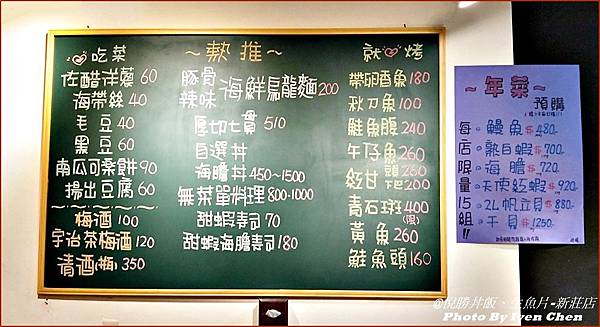 吃菜
佐醋洋蔥 60
海帶絲 40
毛豆 40
黑豆 60
南瓜可樂餅 90
揚出豆腐 60
梅酒 100
宇治茶梅酒 120
清酒(瓶) 350
~熱推~
豚骨
辣味 海鮮烏龍麵 200
厚切七貫 510
自選丼
海膽丼 450~1500
無菜單料理 800-1000
甜蝦壽司 70
甜蝦海膽壽司 180
就 烤
帶卵香魚 180
秋刀魚 100
鮭魚腹 240
午仔魚 260
紅甘 頭 260
下巴 200
青石斑 400
(限)
黃魚 260
鮭魚頭 160
~年菜~
預購
每店限量15組!!
鰻魚 $480.
熟白蝦 $700.
海膽 $720.
天使紅蝦 $920.
2L帆立貝 $880.
干貝 $1250.
@悅勝丼飯、生魚片-新莊店
Photo By Iven Chen